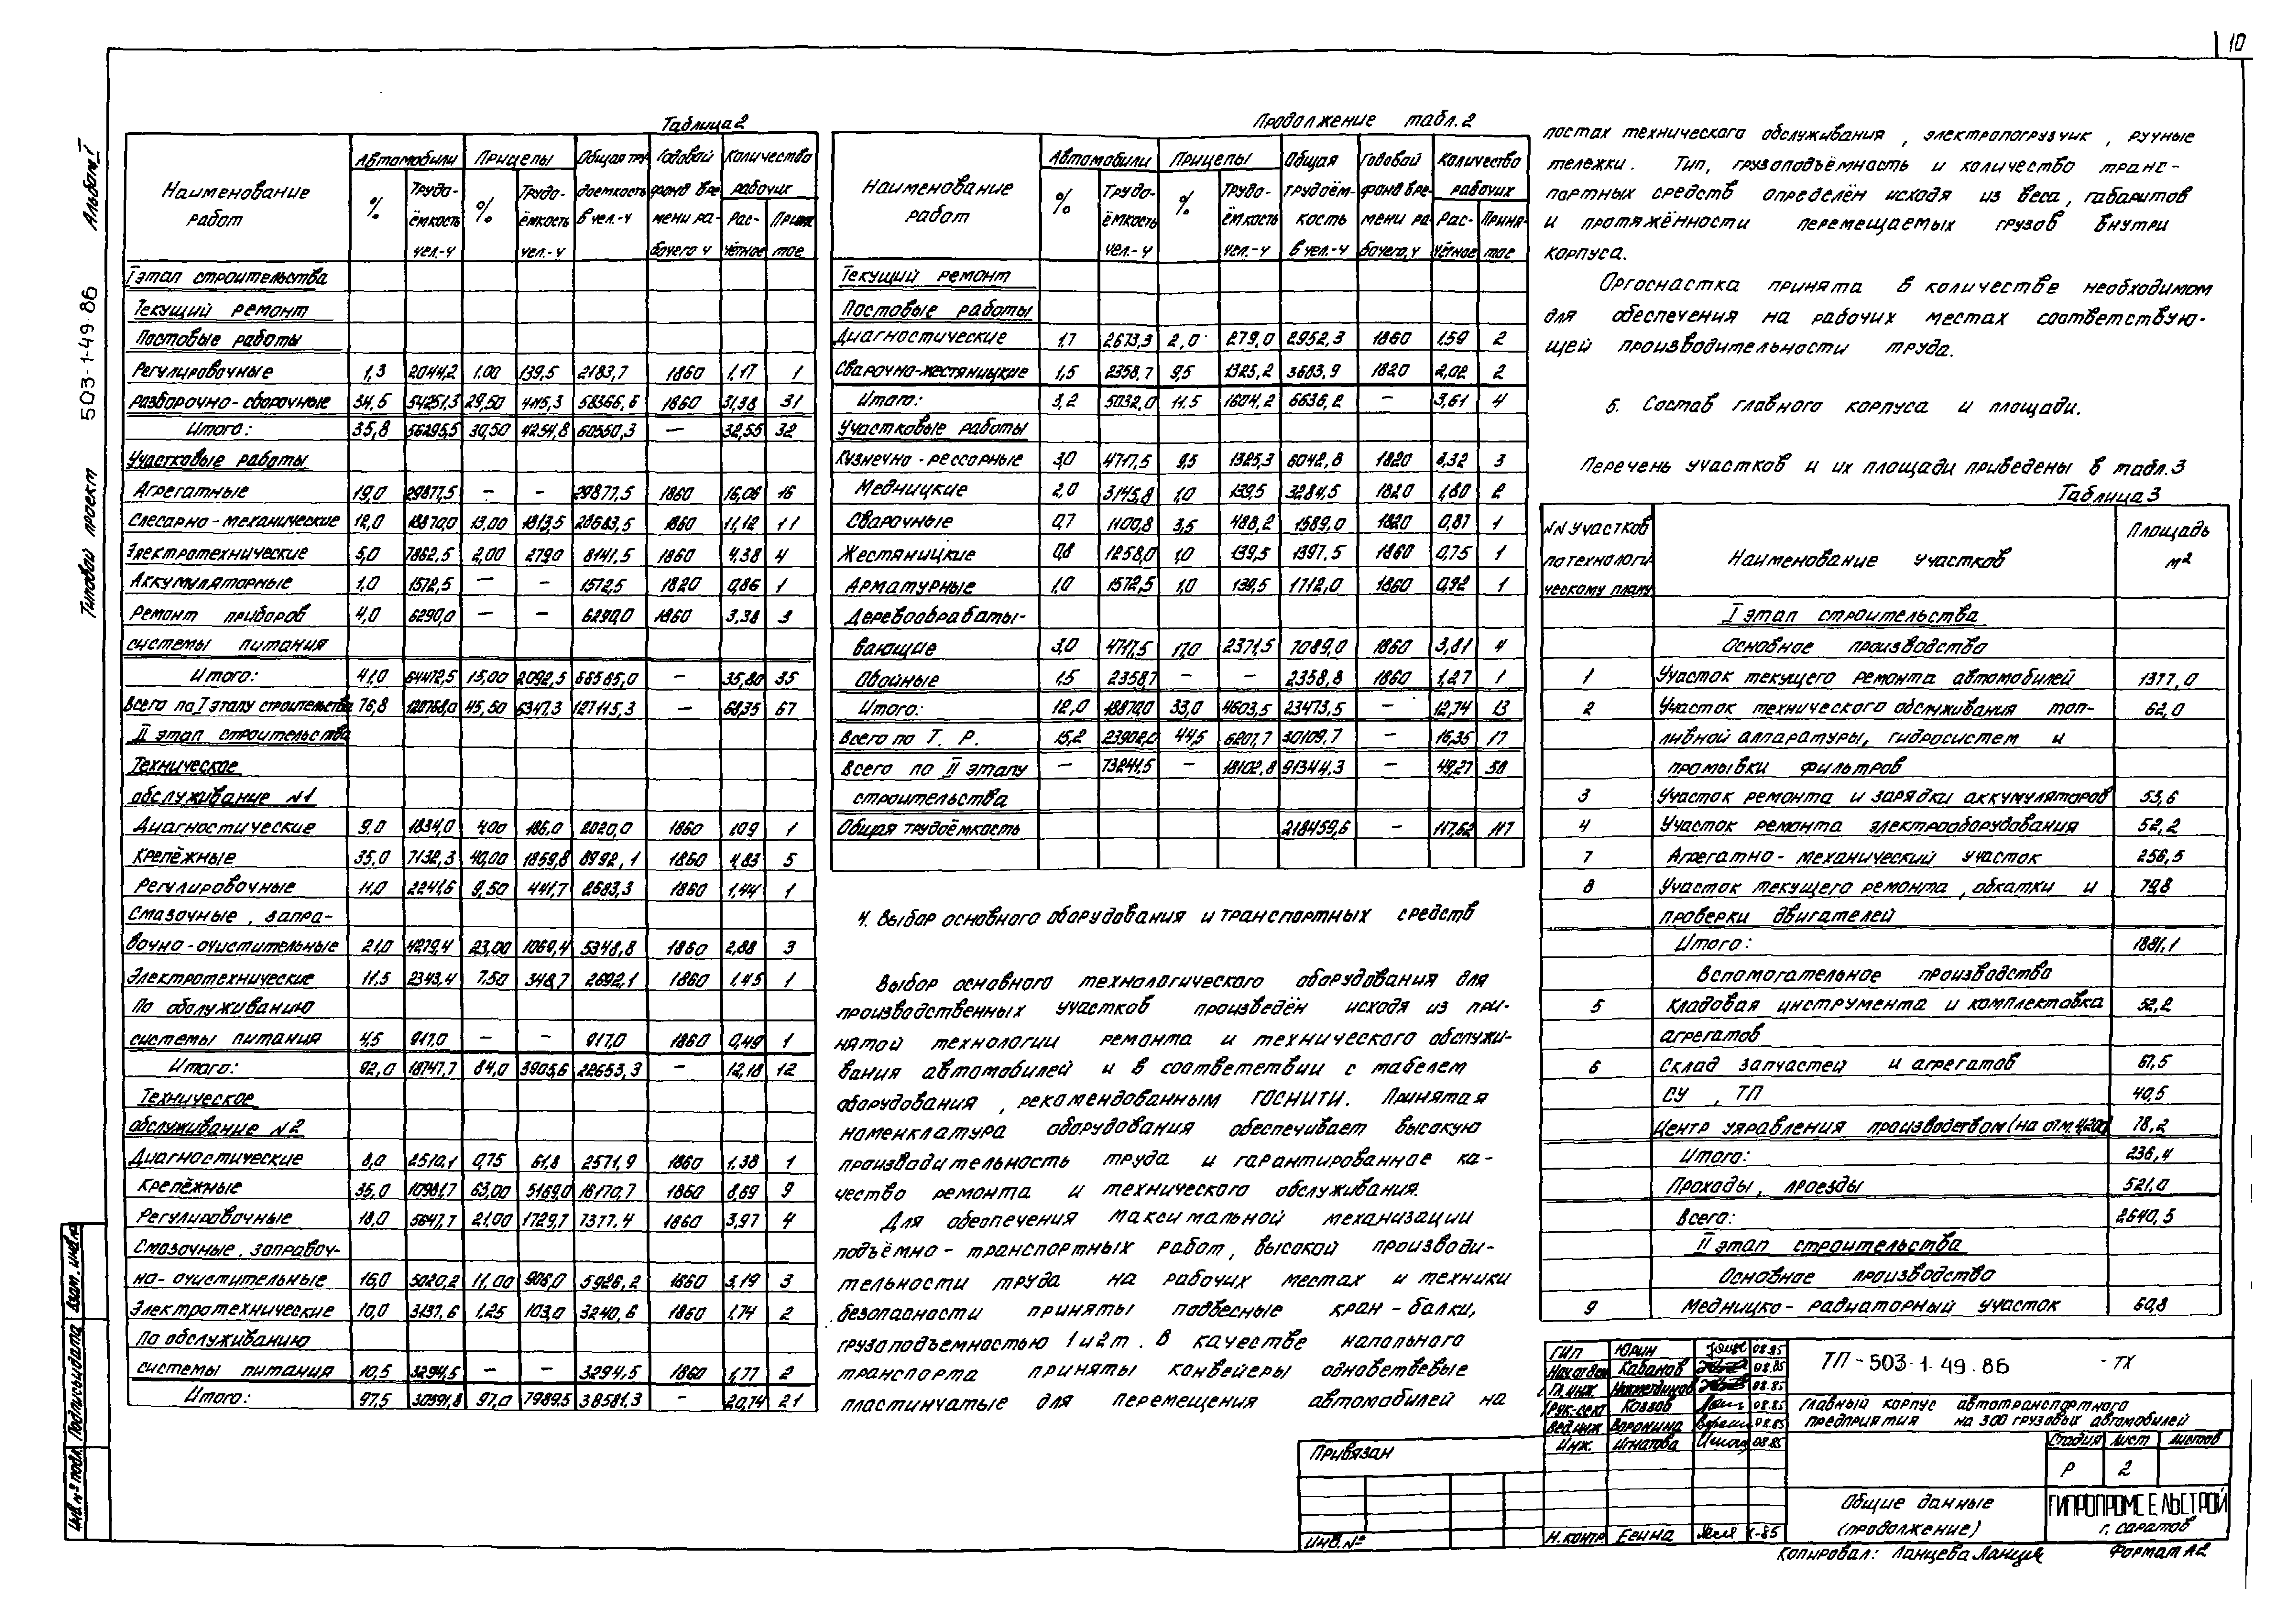 10
Альбом I
Типовой проект 503-1-49.86
Таблица 2
Наименование работ | Автомобили % | Трудоёмкость чел.-ч | Прицепы % | Трудоёмкость чел.-ч | Общая трудоемкость в чел-ч | Годовой фонд времени рабочего ч | Количество рабочих Расчётное | Принятое
I этап строительства
Текущий ремонт
Постовые работы
Регулировочные 1,3 2044,2 1.00 139,5 2183,7 1860 1,17 1
Разборочно-сборочные 34,5 54251,3 29,50 4115,3 58366,6 1860 31,38 31
Итого: 35,8 56295,5 30,50 4254,8 60550,3 — 32,55 32
Участковые работы
Агрегатные 19,0 29877,5 — — 29877,5 1860 16,06 16
Слесарно-механические 12,0 18870,0 13,00 1813,5 20683,5 1860 11,12 11
Электротехнические 5,0 7862,5 2,00 279,0 8141,5 1860 4,38 4
Аккумуляторные 1,0 1572,5 — — 1572,5 1820 0,86 1
Ремонт приборов 4,0 6290,0 — — 6290,0 1860 3,38 3
системы питания
Итого: 41,0 64472,5 15,00 2092,5 66565,0 — 35,80 35
Всего по I этапу строительства 76,8 120768,0 45,50 6347,3 127115,3 — 68,35 67
II этап строительства
Техническое
обслуживание N1
Диагностические 9,0 1834,0 4,00 186,0 2020,0 1860 1,09 1
Крепёжные 35,0 7132,3 40,00 1859,8 8992,1 1860 4,83 5
Регулировочные 11,0 2241,6 9,50 441,7 2683,3 1860 1,44 1
Смазочные, запра-
вочно-очистительные 21,0 4279,4 23,00 1069,4 5348,8 1860 2,88 3
Электротехнические 11,5 2343,4 7.50 348,7 2692,1 1860 1,45 1
По обслуживанию
системы питания 4,5 917,0 — — 917,0 1860 0,49 1
Итого: 92,0 18747,7 84,0 3905,6 22653,3 — 12,18 12
Техническое
обслуживание N2
Диагностические 8,0 2510,1 0,75 61,8 2571,9 1860 1,38 1
Крепёжные 35,0 10981,7 63,00 5189,0 16170,7 1860 8,69 9
Регулировочные 18,0 5647,7 21,00 1729,7 7377.4 1860 3,97 4
Смазочные, заправоч-
но-очистительные 16,0 5020,2 11.00 906,0 5926,2 1860 3,19 3
Электротехнические 10,0 3137,6 1,25 103,0 3240,6 1860 1,74 2
По обслуживанию
системы питания 10,5 3294,5 — — 3294,5 1860 1,77 2
Итого: 97,5 30591,8 97,0 7989,5 38581,3 — 20,74 21
Продолжение табл. 2
Наименование работ | Автомобили % | Трудоёмкость чел.-ч | Прицепы % | Трудоёмкость чел.-ч | Общая трудоёмкость в чел-ч | Годовой фонд времени рабочего, ч | Количество рабочих Расчётное | Принятое
Текущий ремонт
Постовые работы
Диагностические 1,7 2673,3 2,0 279,0 2952,3 1860 1,59 2
Сварочно-жестяницкие 1,5 2358,7 9,5 1325,2 3683,9 1820 2,02 2
Итого: 3,2 5032,0 11.5 1604,2 6636,2 — 3,61 4
Участковые работы
Кузнечно-рессорные 3,0 4717,5 9,5 1325,3 6042,8 1820 3,32 3
Медницкие 2,0 3145,8 1,0 139,5 3284,5 1820 1,80 2
Сварочные 0,7 1100,8 3,5 488,2 1589,0 1820 0,87 1
Жестяницкие 0,8 1258,0 1,0 139,5 1397,5 1860 0,75 1
Арматурные 1,0 1572,5 1,0 139,5 1712,0 1860 0,92 1
Деревообрабаты-
вающие 3,0 4717,5 17,0 2371,5 7089,0 1860 3,81 4
Обойные 1,5 2358,7 — — 2358,8 1860 1,27 1
Итого: 12,0 18870,0 33,0 4603,5 23473,5 — 12,74 13
Всего по Т. Р. 15,2 23902,0 44,5 6207,7 30109,7 — 16,35 17
Всего по II этапу — 73241,5 — 18102,8 91344,3 — 49,27 50
строительства
Общая трудоёмкость 218459,6 — 117,62 117
4. Выбор основного оборудования и транспортных средств
Выбор основного технологического оборудования для
производственных участков произведён исходя из при-
нятой технологии ремонта и технического обслужи-
вания автомобилей и в соответствии с табелем
оборудования, рекомендованным ГОСНИТИ. Принятая
номенклатура оборудования обеспечивает высокую
производительность труда и гарантированное ка-
чество ремонта и технического обслуживания.
Для обеспечения максимальной механизации
подъёмно-транспортных работ, высокой производи-
тельности труда на рабочих местах и техники
безопасности приняты подвесные кран-балки,
грузоподъемностью 1 и 2 т. В качестве напольного
транспорта приняты конвейеры одноветвевые
пластинчатые для перемещения автомобилей на
постах технического обслуживания, электропогрузчик, ручные
тележки. Тип, грузоподъёмность и количество транс-
портных средств определён исходя из веса, габаритов
и протяжённости перемещаемых грузов внутри
корпуса.
Оргоснастка принята в количестве необходимом
для обеспечения на рабочих местах соответствую-
щей производительности труда.
5. Состав главного корпуса и площади.
Перечень участков и их площади приведены в табл. 3
Таблица 3
NN участков по технологическому плану | Наименование участков | Площадь м²
I этап строительства
Основное производство
1 Участок текущего ремонта автомобилей 1377,0
2 Участок технического обслуживания топ- 62,0
ливной аппаратуры, гидросистем и
промывки фильтров
3 Участок ремонта и зарядки аккумуляторов 53,6
4 Участок ремонта электрооборудования 52,2
7 Агрегатно-механический участок 256,5
8 Участок текущего ремонта, обкатки и 79,8
проверки двигателей
Итого: 1881,1
Вспомогательное производство
5 Кладовая инструмента и комплектовка 52,2
агрегатов
6 Склад запчастей и агрегатов 67,5
СУ, ТП 40,5
Центр управления производством (на отм. 4,200) 78,2
Итого: 236,4
Проходы, проезды 521,0
Всего: 2640,5
II этап строительства
Основное производство
9 Медницко-радиаторный участок 60,8
ГИП Юрин 08.85
Нач. отдел Кабанов 08.85
Гл. инж. 08.85
Рук. сект Козлов 08.85
Вед. инж Воронина 08.85
Инж. Игнатова 08.85
Н. контр. Есина X-85
ТП-503-1-49.86 -ТХ
Главный корпус автотранспортного
предприятия на 300 грузовых автомобилей
Стадия Лист Листов
Р 2
Общие данные
(продолжение)
ГИПРОПРОМСЕЛЬСТРОЙ
г. Саратов
Привязан
Инв. №
Копировал: Ланцева
Формат А2
Инв. № подл. Подпись и дата Взам. инв. №